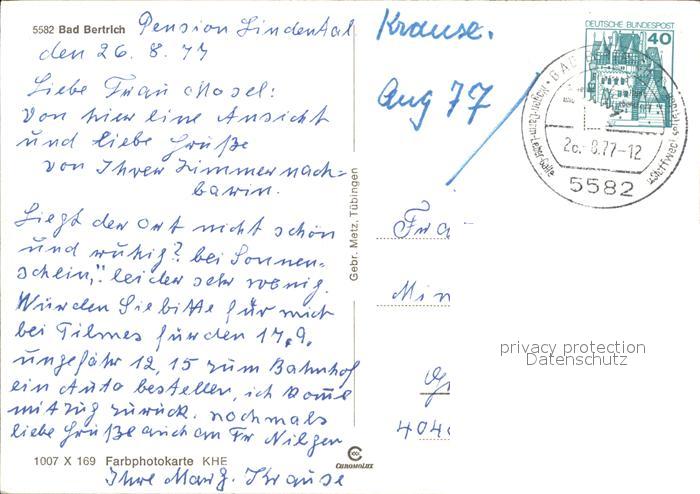 5582 Bad Bertrich Pension Lindental
den 26. 8. 77
Liebe Frau Mosel:
Von hier eine Ansicht
und liebe Grüße
von Ihrer Zimmernach=
barin.
Liegt der Ort nicht schön
und ruhig? bei Sonnen-
schein,, leider sehr wenig.
Würden Sie bitte für mich
bei Tilmes für den 17.9.
ungefähr 12,15 zum Bahnhof
ein Auto bestellen, ich komme
mit Zug zurück. nochmals
liebe Grüße auch an Fr Nilgen
1007 X 169 Farbphotokarte KHE
Ihre Marg. Krause
Gebr. Metz, Tübingen
CHROMOLUX
Krause.
Aug 77
DEUTSCHE BUNDESPOST
40
BAD
Magen-Darm-Leber-Galle
26.-8.77-12
5582
Fra
Min
404
privacy protection
Datenschutz